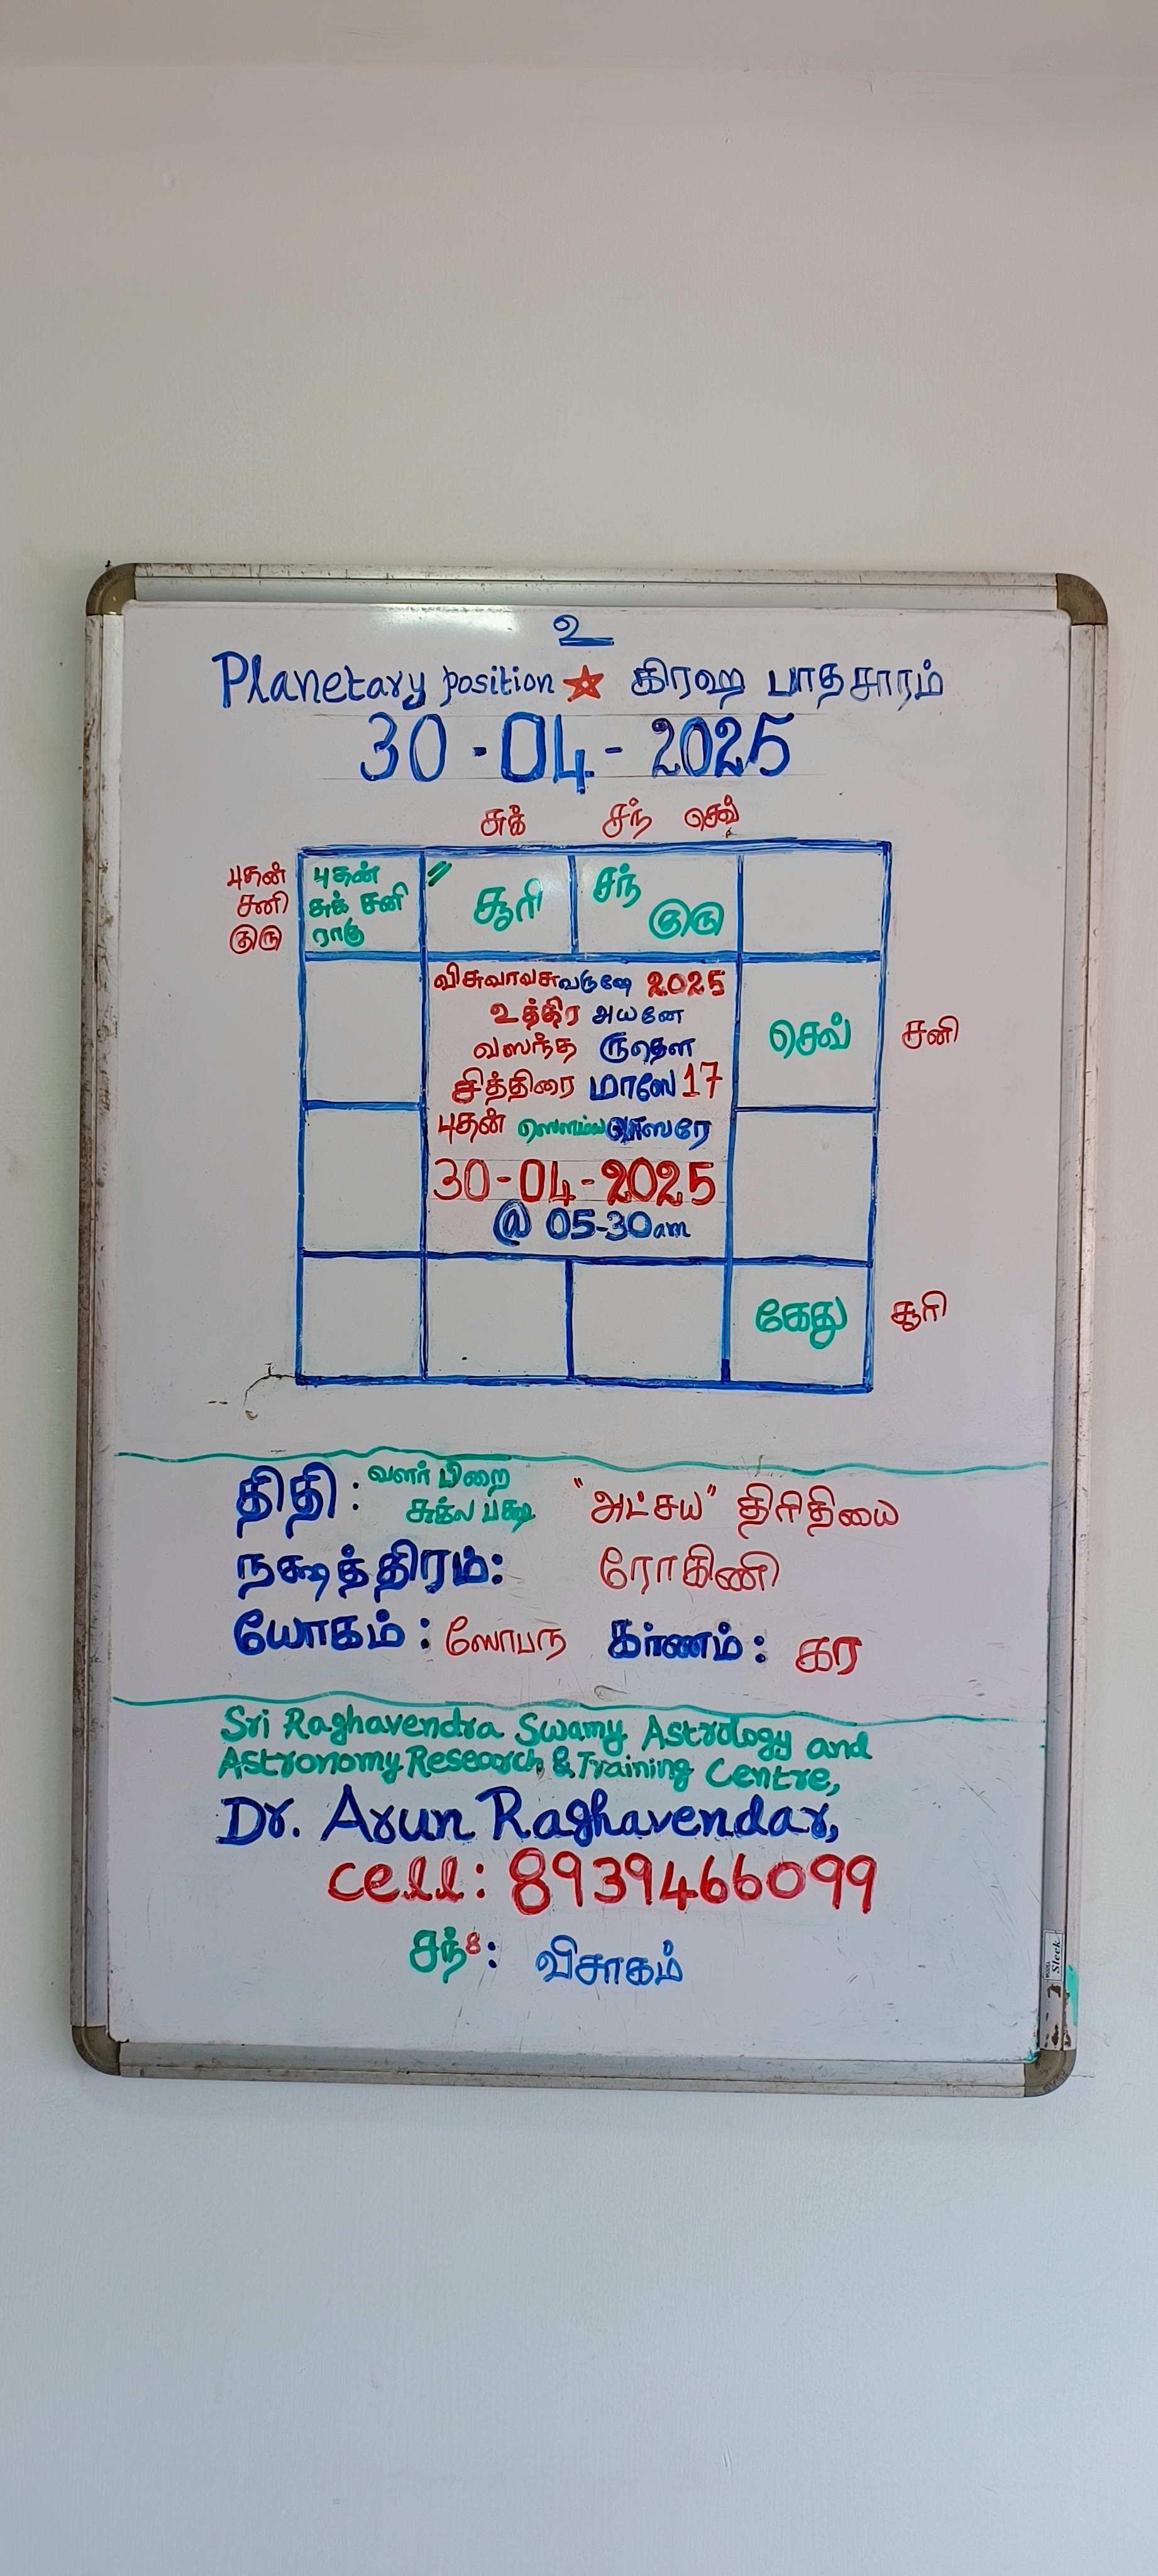 உ
Planetary position ★ கிரஹ பாதசாரம்
30-04-2025
சுக் சந் செவ்
புதன்
சனி
குரு
புதன்
சுக் சனி
ராகு
" சூரி
சந்
குரு
விசுவாவசுவருஷே 2025
உத்திர அயனே
வஸந்த ருதௌ
சித்திரை மாஸே 17
புதன் ஸௌம்ய வாஸரே
30-04-2025
@ 05-30am
செவ்
சனி
கேது
சூரி
திதி: வளர் பிறை
சுக்ல பக்ஷ "அட்சய" திரிதியை
நக்ஷத்திரம்: ரோகிணி
யோகம்: ஸோபந கர்ணம்: கர
Sri Raghavendra Swamy Astrology and
Astronomy Research & Training Centre,
Dr. Arun Raghavendar,
cell: 8939466099
சந்8: விசாகம்
Sleek